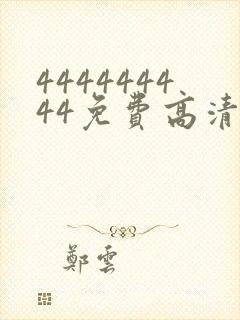 4444444
44免费高清
鄭雲